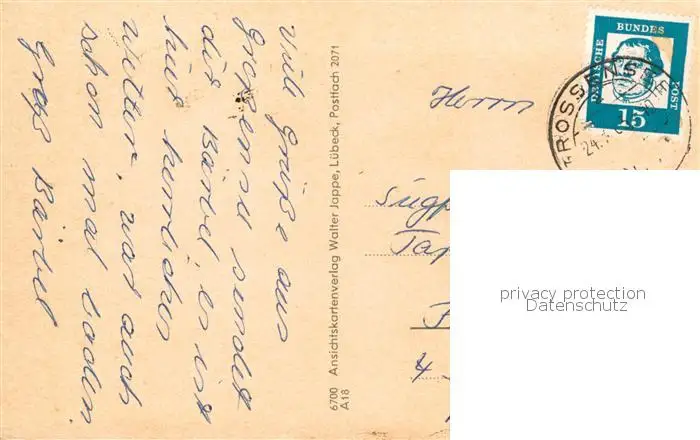 viele Grüße aus
Großensee sendet
dir Bärbel, es ist
hier herrliches
Wetter, war auch
schon mal baden.
Gruß Bärbel
6700 Ansichtskartenverlag Walter Jappe, Lübeck, Postfach 2071
A 18
Herrn
4
DEUTSCHE BUNDESPOST
15
GROSSENSEE
24.
privacy protection
Datenschutz